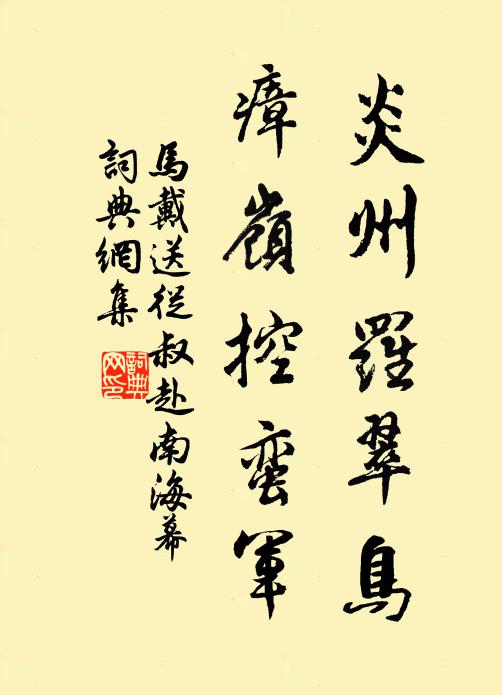 炎州羅翠鳥
瘴嶺控蛮軍
馬戴送從叔赴南海幕
詞典網集
詞典网印